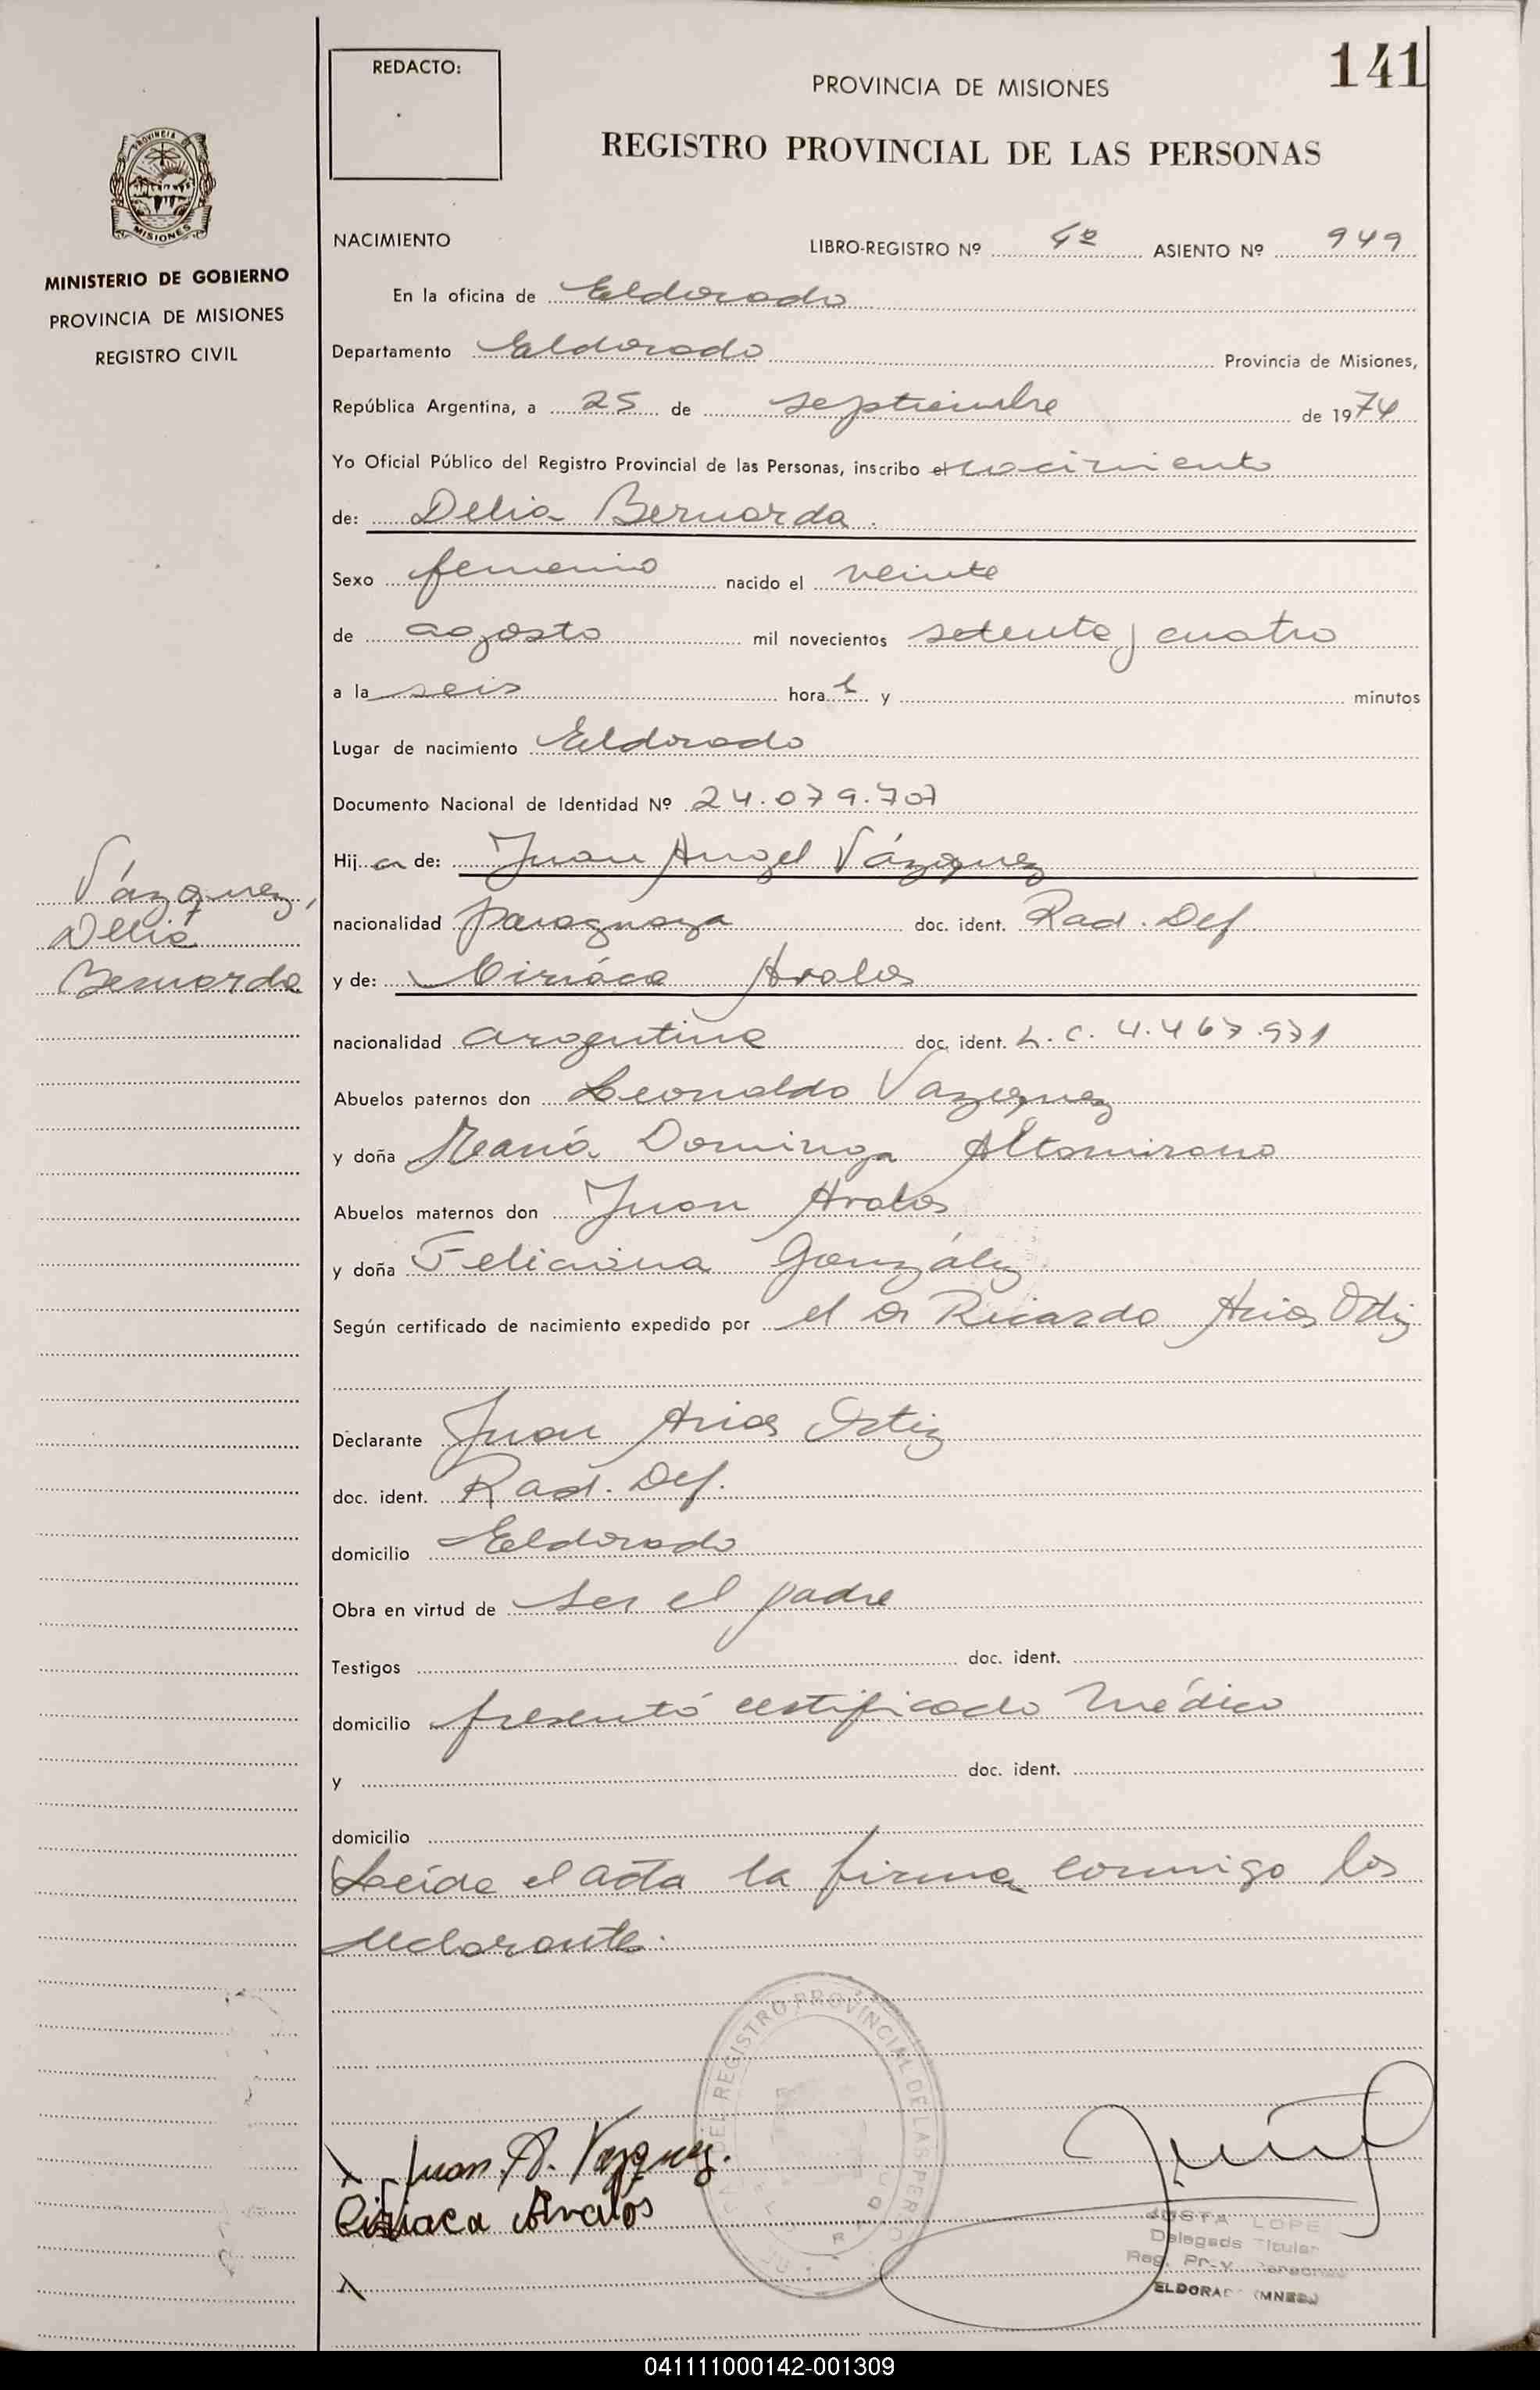 141
REDACTO:
PROVINCIA DE MISIONES
REGISTRO PROVINCIAL DE LAS PERSONAS
PROVINCIA
MISIONES
MINISTERIO DE GOBIERNO
PROVINCIA DE MISIONES
REGISTRO CIVIL
NACIMIENTO
LIBRO-REGISTRO Nº 4º ASIENTO Nº 949
En la oficina de Eldorado
Departamento Eldorado Provincia de Misiones,
República Argentina, a 25 de septiembre de 1974
Yo Oficial Público del Registro Provincial de las Personas, inscribo el nacimiento
de: Delia Bernarda.
Sexo femenino nacido el veinte
de agosto mil novecientos setenta y cuatro
a la seis hora s y minutos
Lugar de nacimiento Eldorado
Documento Nacional de Identidad Nº 24.079.707
Hij a de: Juan Angel Vázquez
Vázquez,
Delia
Bernarda
nacionalidad paraguaya doc. ident. Rad. Def.
y de: Ciriáca Avalos
nacionalidad argentina doc. ident. L. C. 4.467.971
Abuelos paternos don Leonaldo Vazquez
y doña María Dominga Altamirano
Abuelos maternos don Juan Avalos
y doña Feliciana González
Según certificado de nacimiento expedido por el Dr Ricardo Arias Ortiz
Declarante Juan Arias Ortiz
doc. ident. Rad. Def.
domicilio Eldorado
Obra en virtud de ser el padre
Testigos doc. ident.
domicilio presentó certificado médico
y doc. ident.
domicilio
Leída el acta la firma conmigo los
declarante.
DEL REGISTRO PROVINCIAL DE LAS PERSO
Juan A. Vazquez.
Ciriaca Avalos
LOPE
Delegado Titular
Reg. Prov. Personas
ELDORADO (MNES.)
041111000142-001309